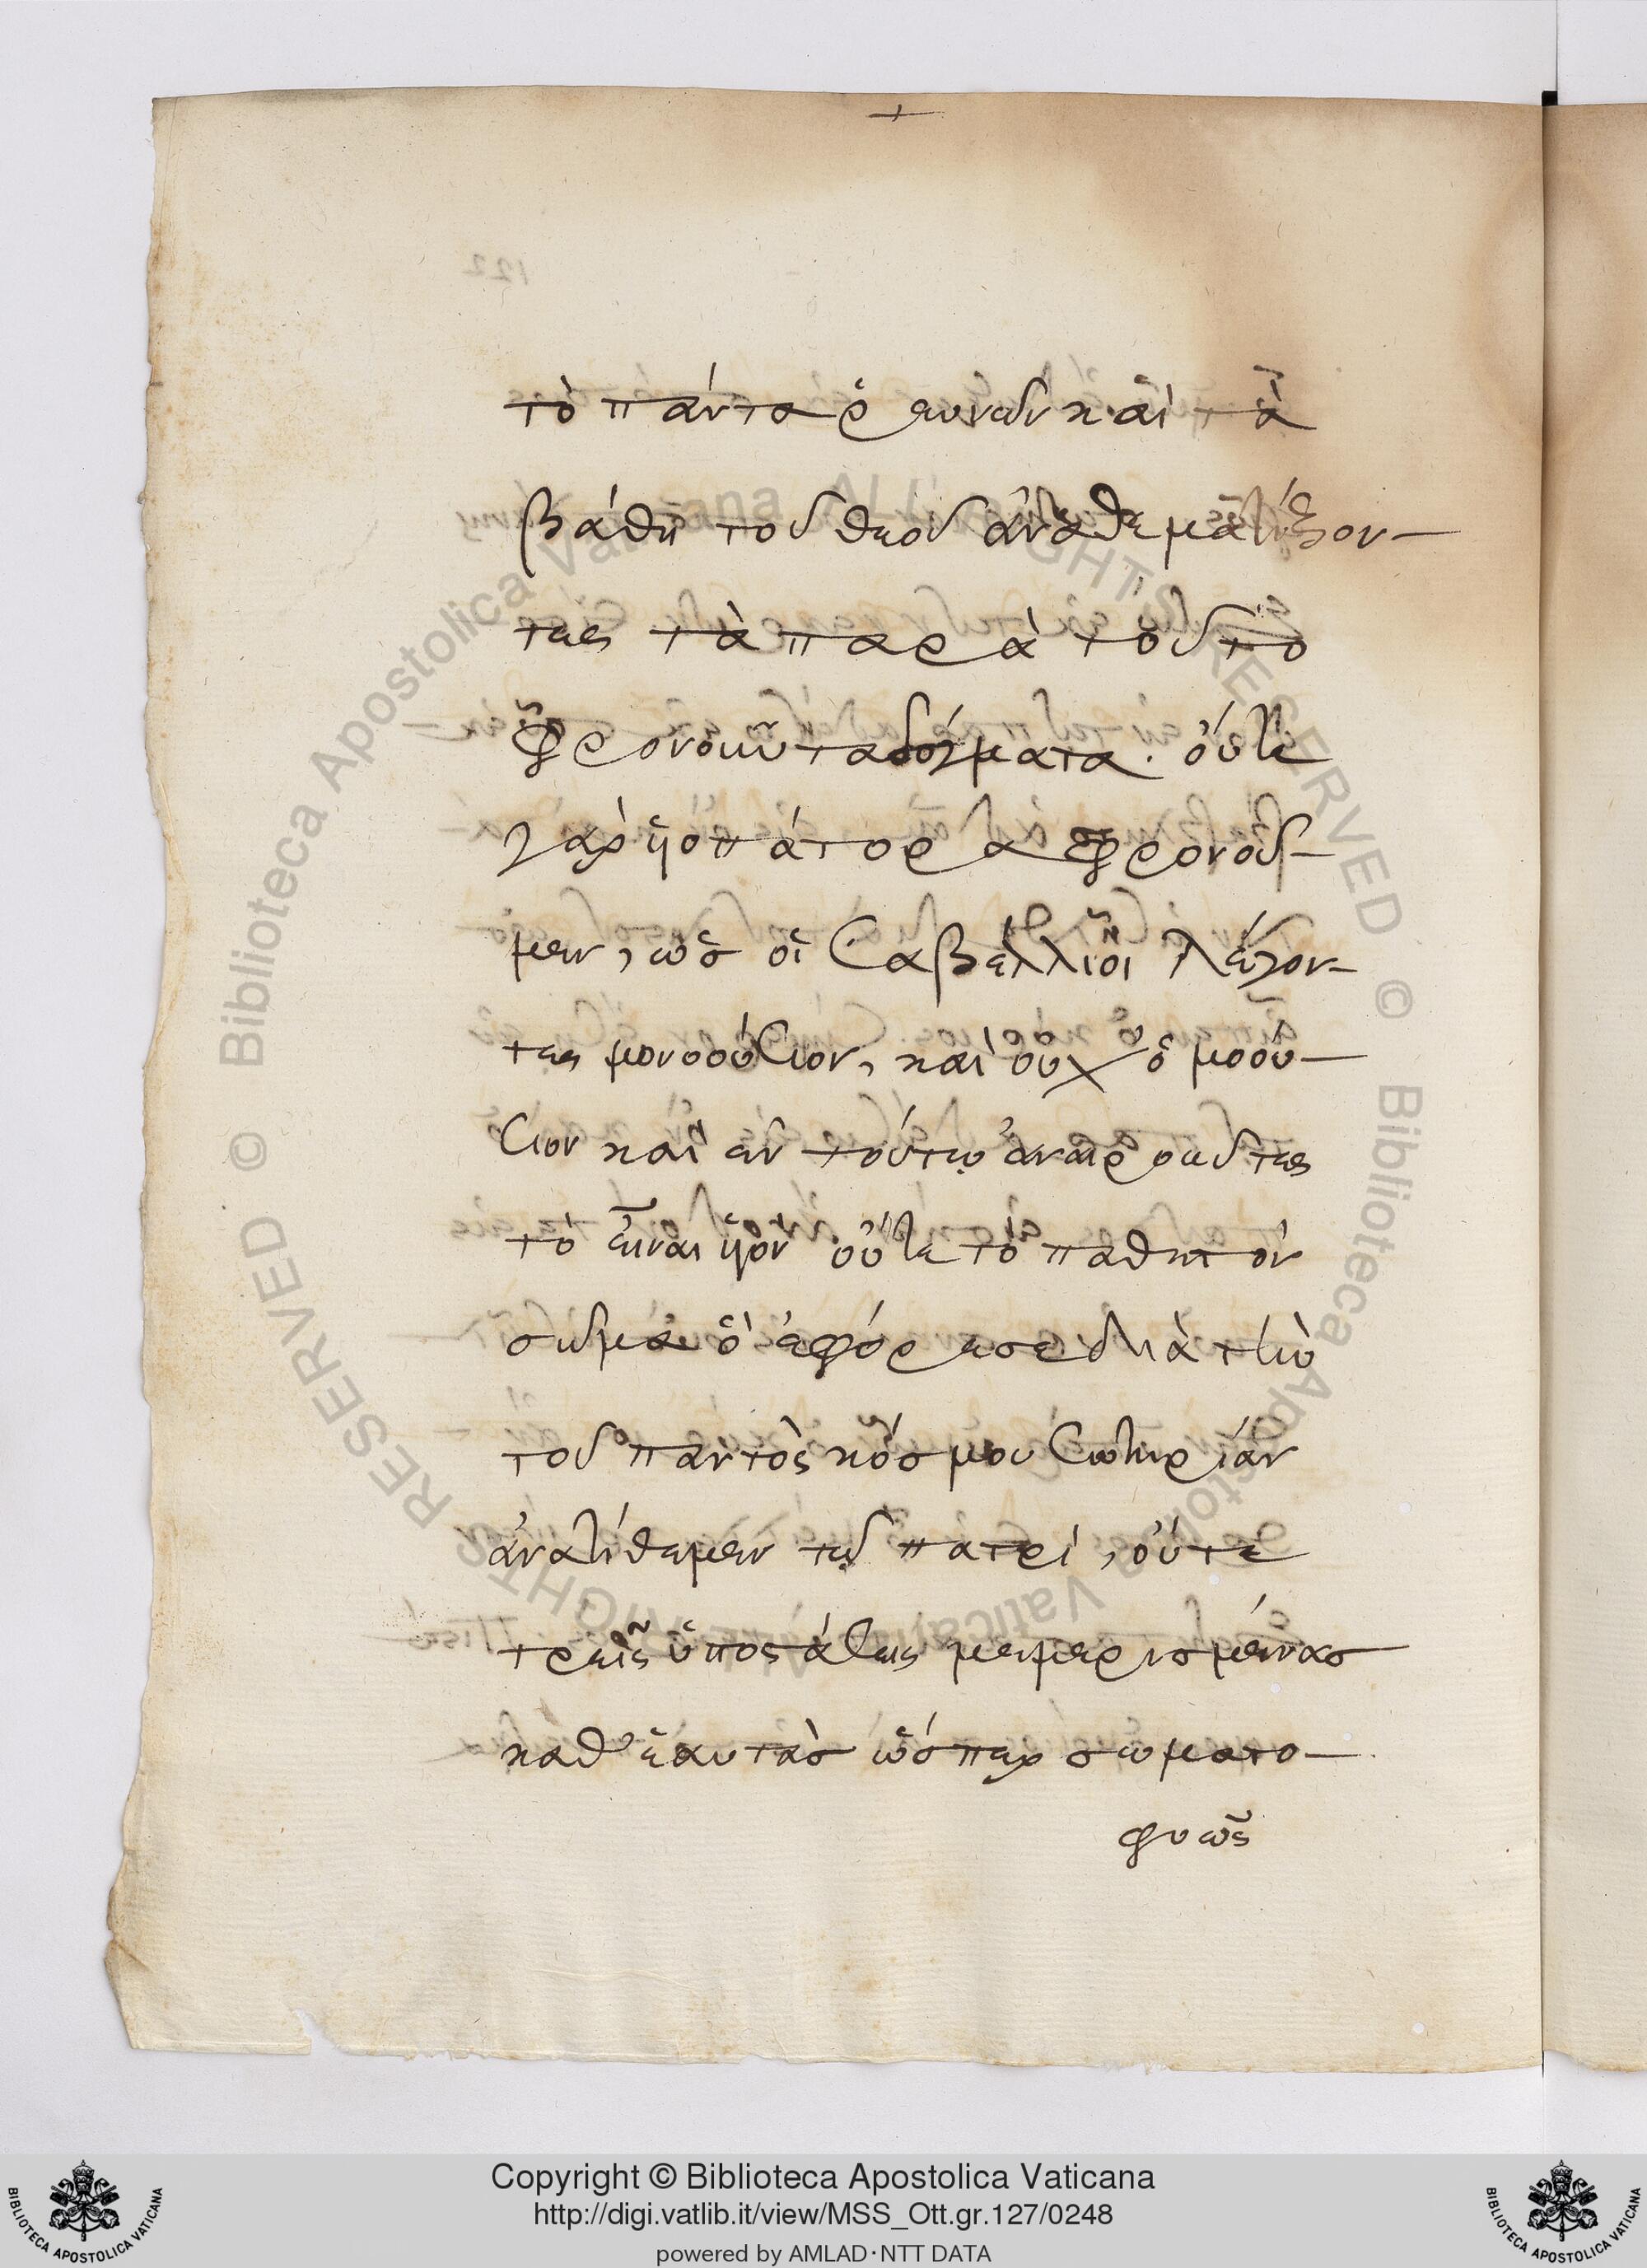 τὸ πάντα ἐρευνῶν καὶ τὰ
βάθη τοῦ θεοῦ ἀναθεματίζον-
τες τὰ παρὰ τοῦτο
φρονοῦντα δόγματα. οὔτε
γὰρ υἱοπάτορα φρονοῦ-
μεν, ὡς οἱ Σαβέλλιοι λέγον-
τες μονοούσιον, καὶ οὐχ ὁμοού-
σιον καὶ ἐν τούτῳ ἀναιροῦντες
τὸ εἶναι υἱόν οὔτε τὸ παθητὸν
σῶμα ὃ ἐφόρεσε διὰ τὴν
τοῦ παντὸς κόσμου σωτηρίαν
ἀνατίθεμεν τῷ πατρί, οὔτε
τρεῖς ὑποστάσεις μεμερισμένας
καθ' ἑαυτὰς ὥσπερ σωματο-
φυῶς
Copyright © Biblioteca Apostolica Vaticana
http://digi.vatlib.it/view/MSS_Ott.gr.127/0248
powered by AMLAD·NTT DATA
BIBLIOTECA APOSTOLICA VATICANA
BIBLIOTECA APOSTOLICA VATICANA
© Biblioteca Apostolica Vaticana ALL RIGHTS RESERVED
© Biblioteca Apostolica Vaticana ALL RIGHTS RESERVED